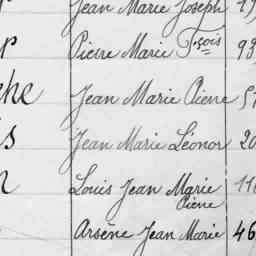 Jean Marie Joseph
Pierre Marie Fçois 93
che Jean Marie Pierre
s Jean Marie Léonor 20
Louis Jean Marie 
Pierre
Arsène Jean Marie 46